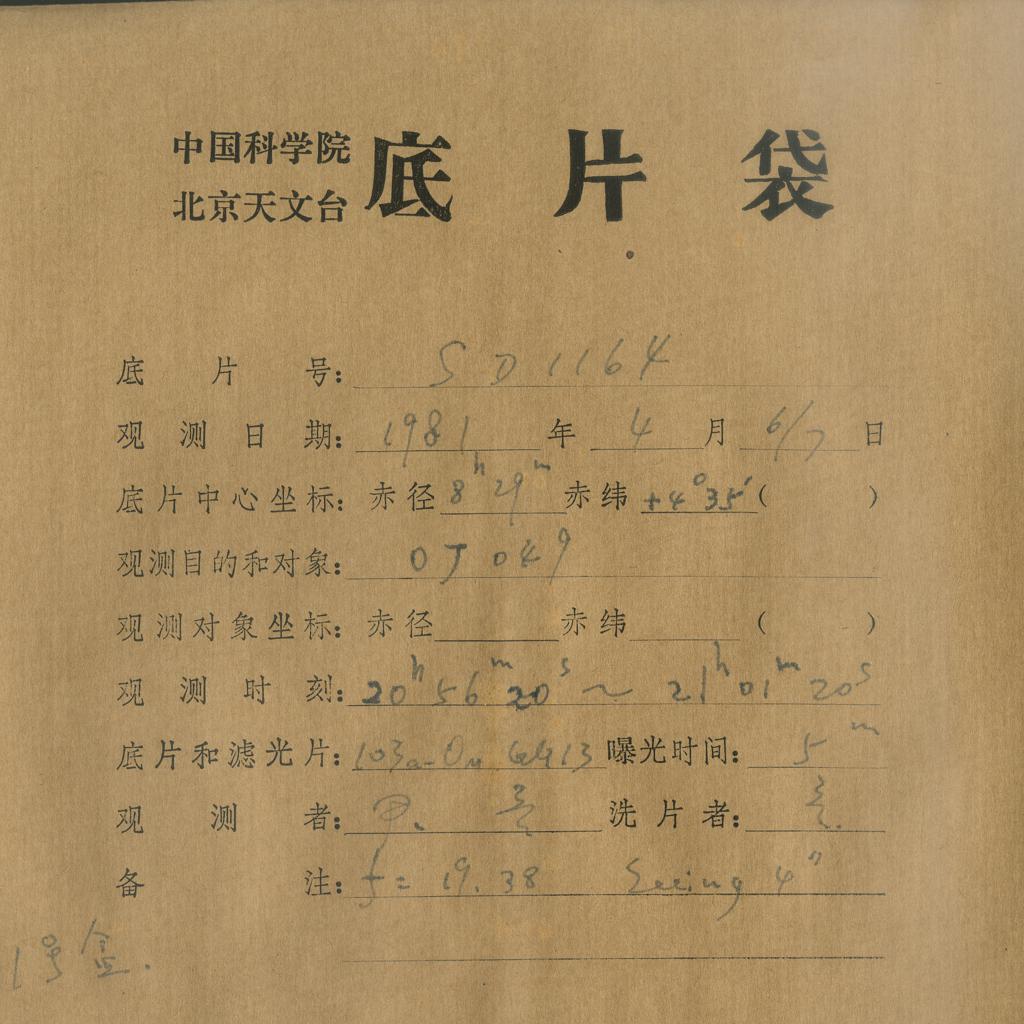 中国科学院
北京天文台
底片袋
底片号: SD1164
观测日期: 1981年 4月 6/7日
底片中心坐标: 赤径 8h 29m 赤纬 +4° 35′ ( )
观测目的和对象: OJ 049
观测对象坐标: 赤径 赤纬 ( )
观测时刻: 20h 56m 20s ~ 21h 01m 20s
底片和滤光片: 103a-O 曝光时间: 5m
观测者: 洗片者:
备注: f = 19.38 Seeing 4″
1号盒.